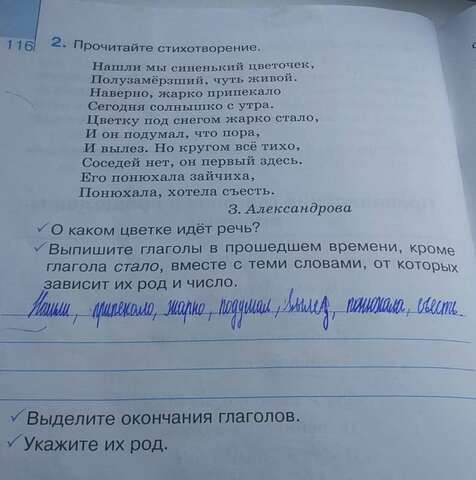 116
2. Прочитайте стихотворение.
Нашли мы синенький цветочек,
Полузамёрзший, чуть живой.
Наверно, жарко припекало
Сегодня солнышко с утра.
Цветку под снегом жарко стало,
И он подумал, что пора,
И вылез. Но кругом всё тихо,
Соседей нет, он первый здесь.
Его понюхала зайчиха,
Понюхала, хотела съесть.
З. Александрова
✓ О каком цветке идёт речь?
✓ Выпишите глаголы в прошедшем времени, кроме
глагола стало, вместе с теми словами, от которых
зависит их род и число.
Нашли, припекало, жарко, подумал, вылез, понюхала, съесть.
✓ Выделите окончания глаголов.
✓ Укажите их род.